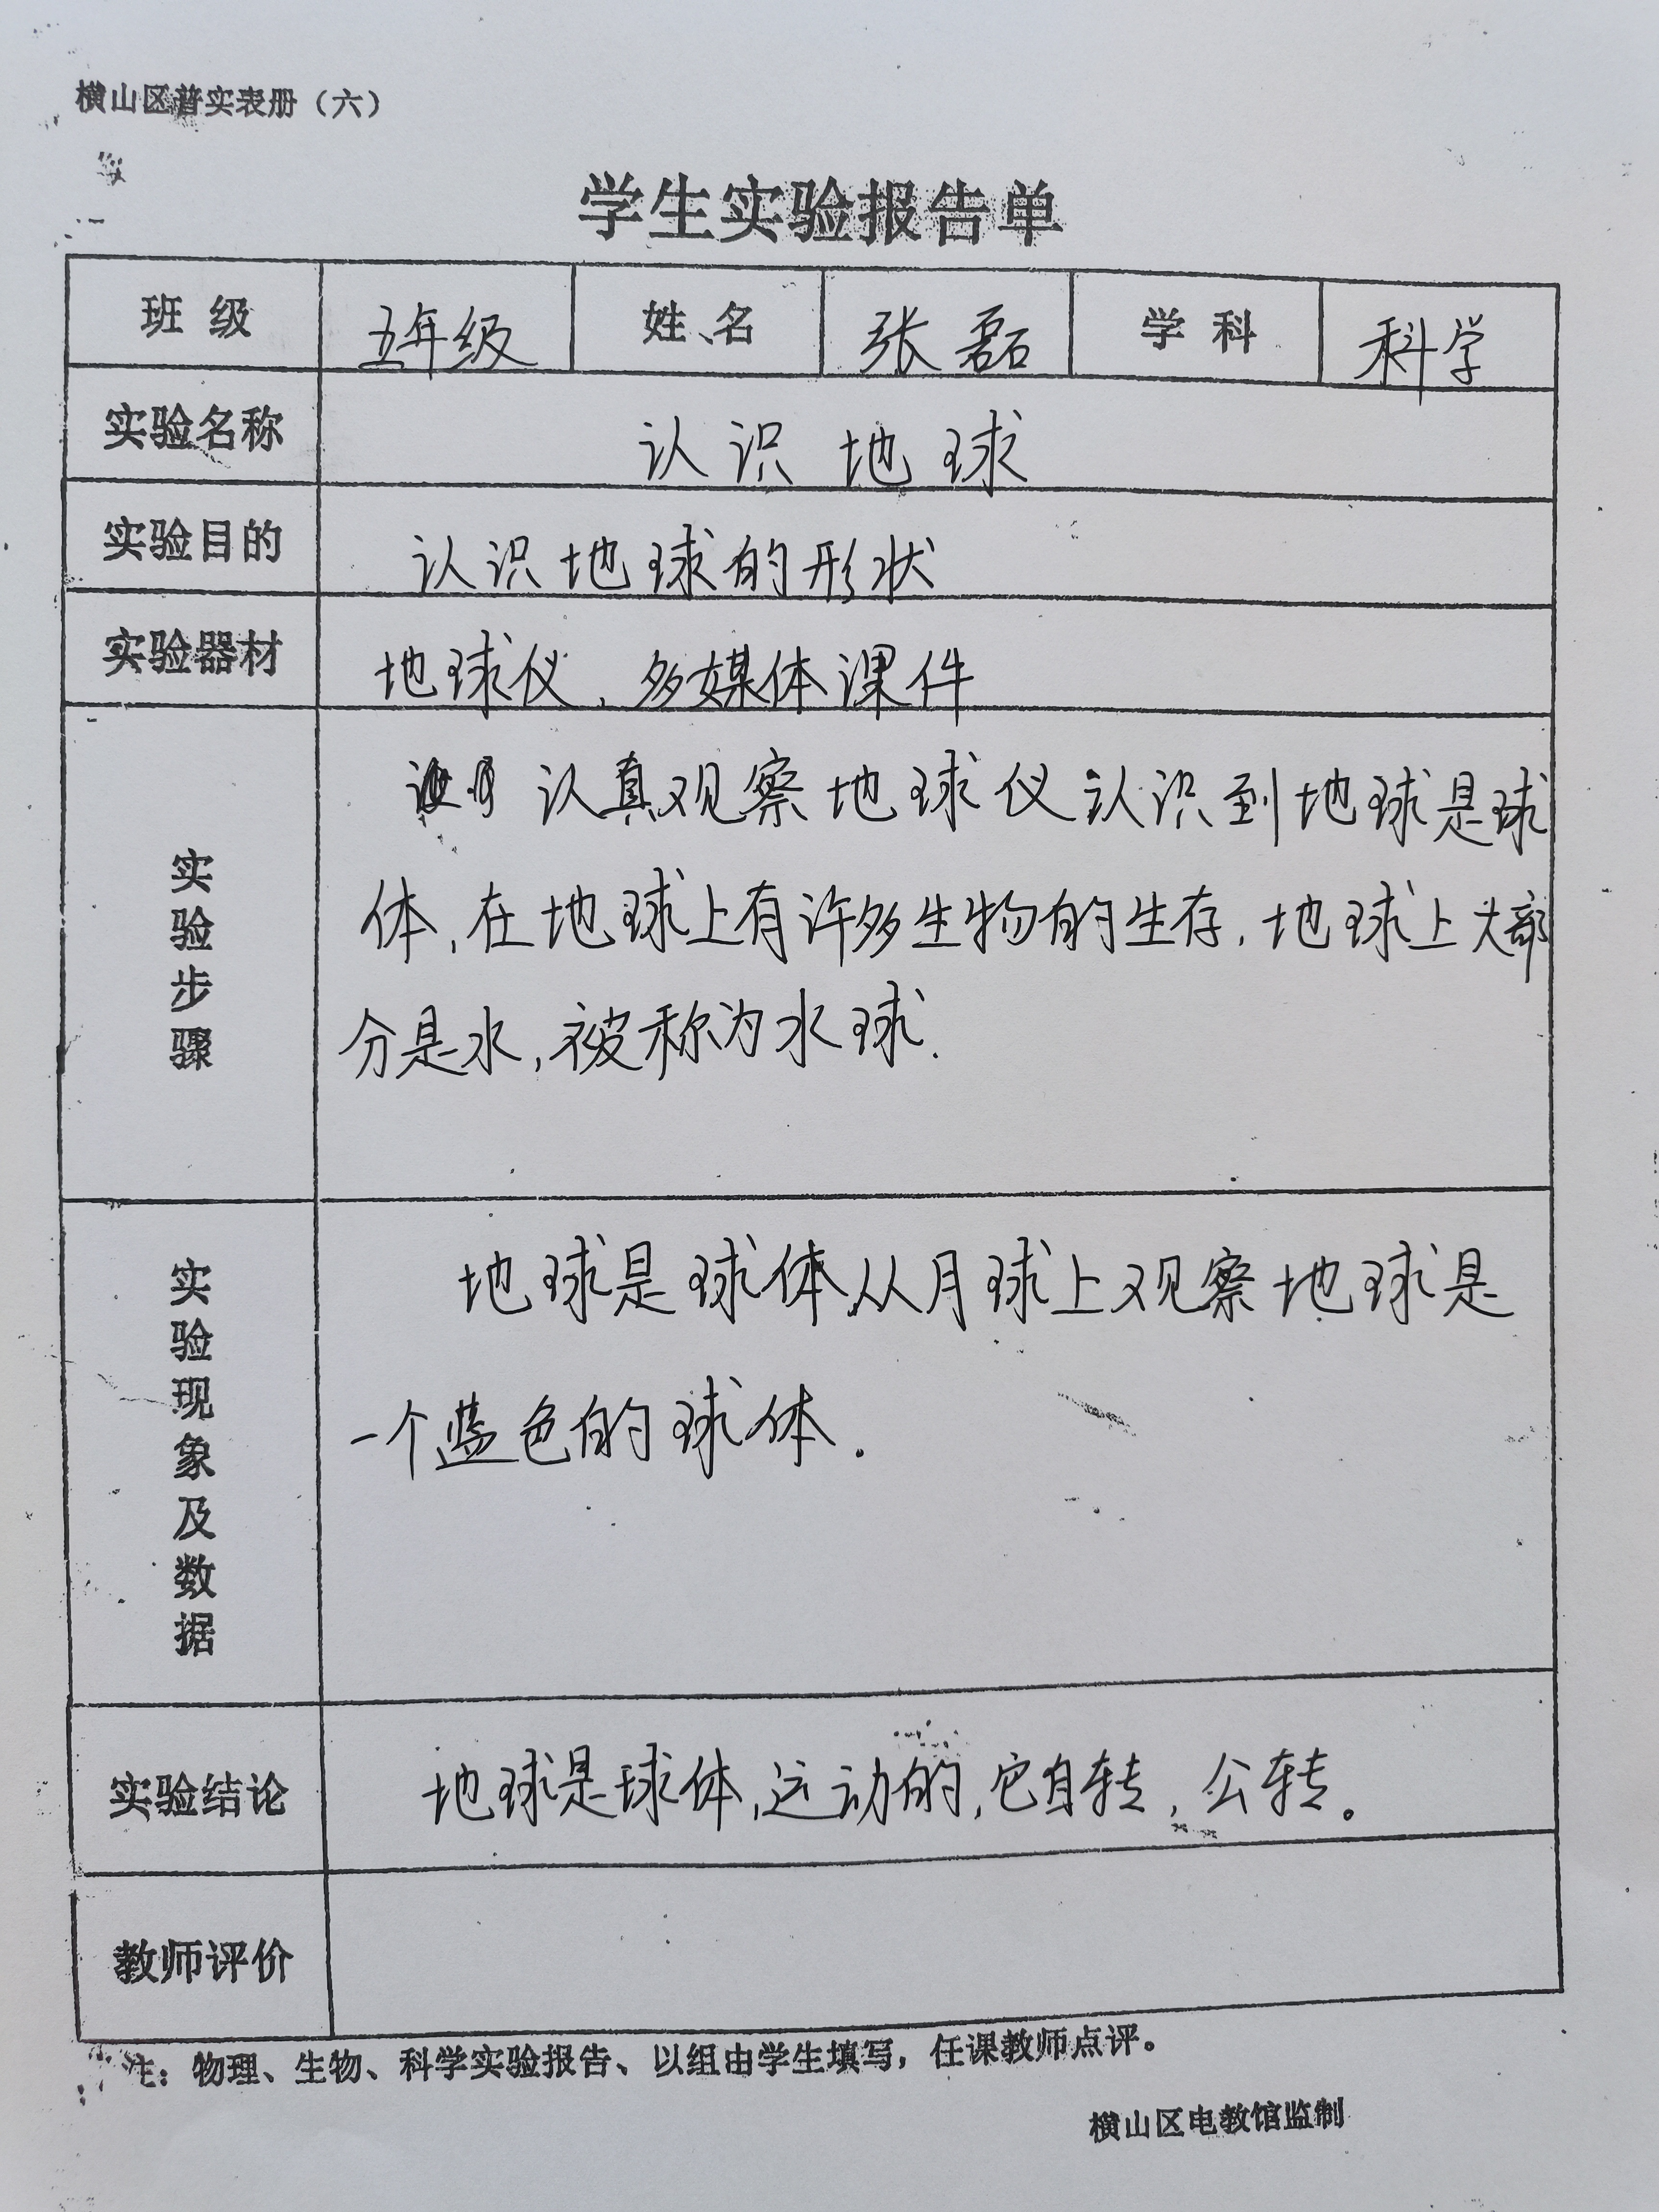 横山区普实表册（六）
学生实验报告单
班 级 五年级 姓 名 张磊 学 科 科学
实验名称 认识地球
实验目的 认识地球的形状
实验器材 地球仪，多媒体课件
实验步骤
认真观察地球仪认识到地球是球
体，在地球上有许多生物的生存，地球上大部
分是水，被称为水球.
实验现象及数据
地球是球体，从月球上观察地球是
一个蓝色的球体.
实验结论 地球是球体，运动的，它自转，公转。
教师评价
注：物理、生物、科学实验报告、以组由学生填写，任课教师点评。
横山区电教馆监制